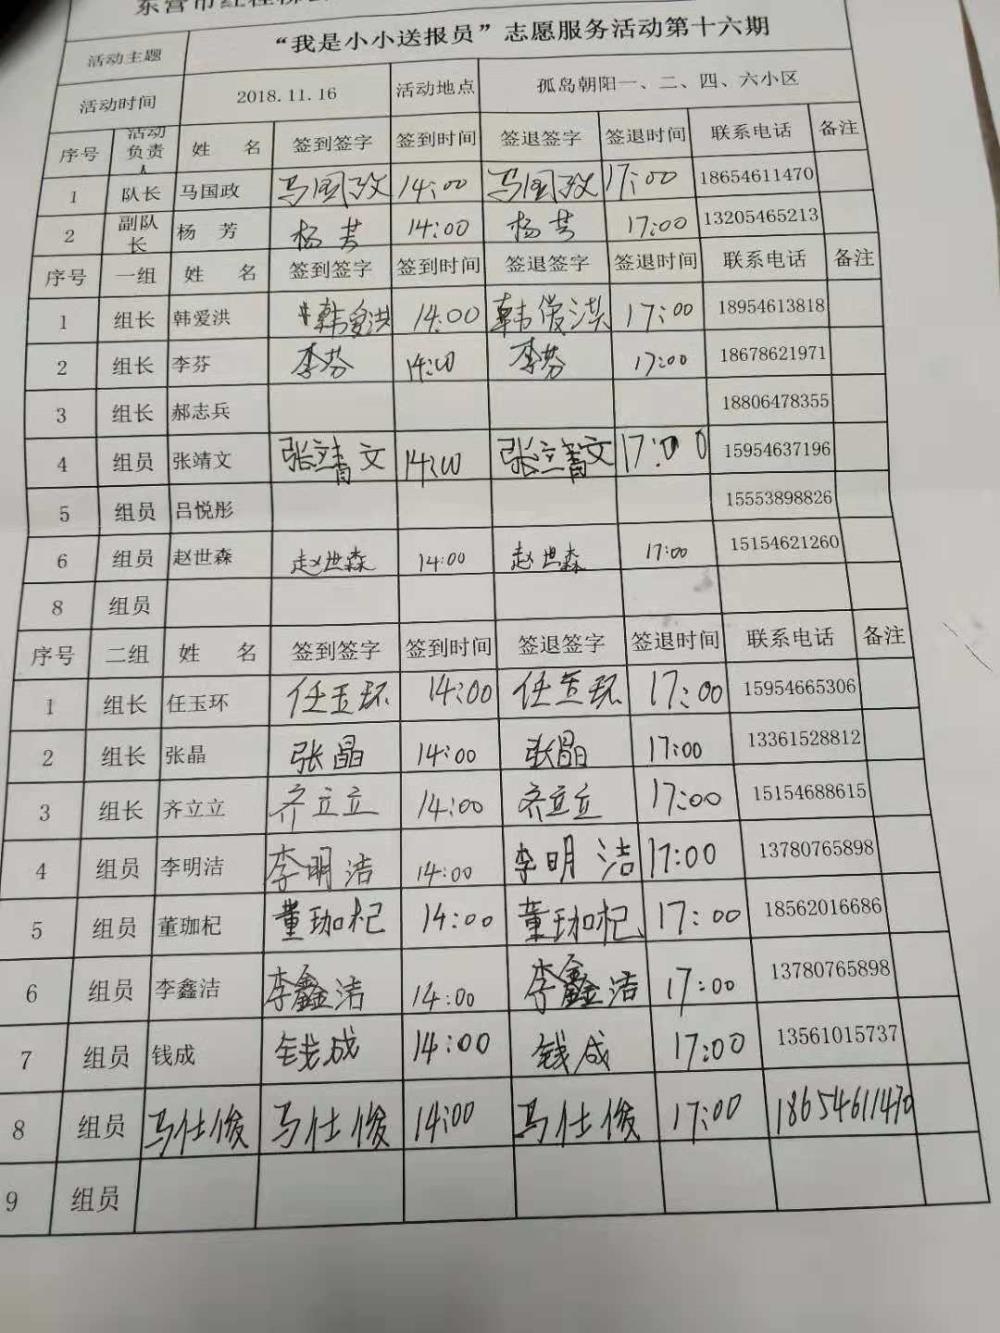 活动主题 “我是小小送报员”志愿服务活动第十六期
活动时间 2018.11.16 活动地点 孤岛朝阳一、二、四、六小区
序号 活动负责人 姓 名 签到签字 签到时间 签退签字 签退时间 联系电话 备注
1 队长 马国政 马国政 14:00 马国政 17:00 18654611470
2 副队长 杨 芳 杨芳 14:00 杨芳 17:00 13205465213
序号 一组 姓 名 签到签字 签到时间 签退签字 签退时间 联系电话 备注
1 组长 韩爱洪 韩爱洪 14:00 韩爱洪 17:00 18954613818
2 组长 李芬 李芬 14:00 李芬 17:00 18678621971
3 组长 郝志兵 18806478355
4 组员 张靖文 张靖文 14:00 张靖文 17:00 15954637196
5 组员 吕悦彤 15553898826
6 组员 赵世森 赵世森 14:00 赵世森 17:00 15154621260
8 组员
序号 二组 姓 名 签到签字 签到时间 签退签字 签退时间 联系电话 备注
1 组长 任玉环 任玉环 14:00 任玉环 17:00 15954665306
2 组长 张晶 张晶 14:00 张晶 17:00 13361528812
3 组长 齐立立 齐立立 14:00 齐立立 17:00 15154688615
4 组员 李明洁 李明洁 14:00 李明洁 17:00 13780765898
5 组员 董珈杞 董珈杞 14:00 董珈杞 17:00 18562016686
6 组员 李鑫洁 李鑫洁 14:00 李鑫洁 17:00 13780765898
7 组员 钱成 钱成 14:00 钱成 17:00 13561015737
8 组员 马仕俊 马仕俊 14:00 马仕俊 17:00 18654611470
9 组员